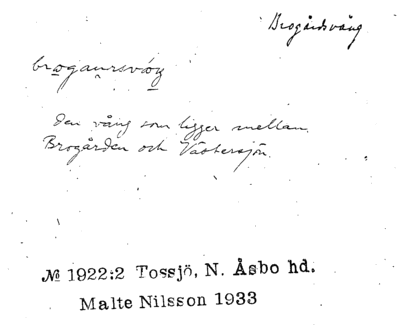 Brogårdsvång
brogaursvåŋ
den vång som ligger mellan
Brogården och Västersjön.
№ 1922:2 Tossjö, N. Åsbo hd.
Malte Nilsson 1933